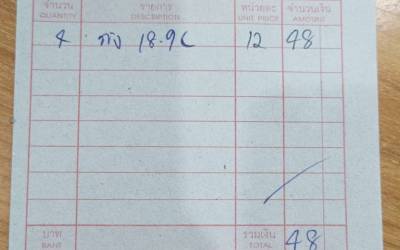 จำนวน รายการ หน่วยละ จำนวนเงิน
QUANTITY DESCRIPTION UNIT PRICE AMOUNT
4 ถัง 18.9L 12 48
บาท รวมเงิน 48
BAHT TOTAL